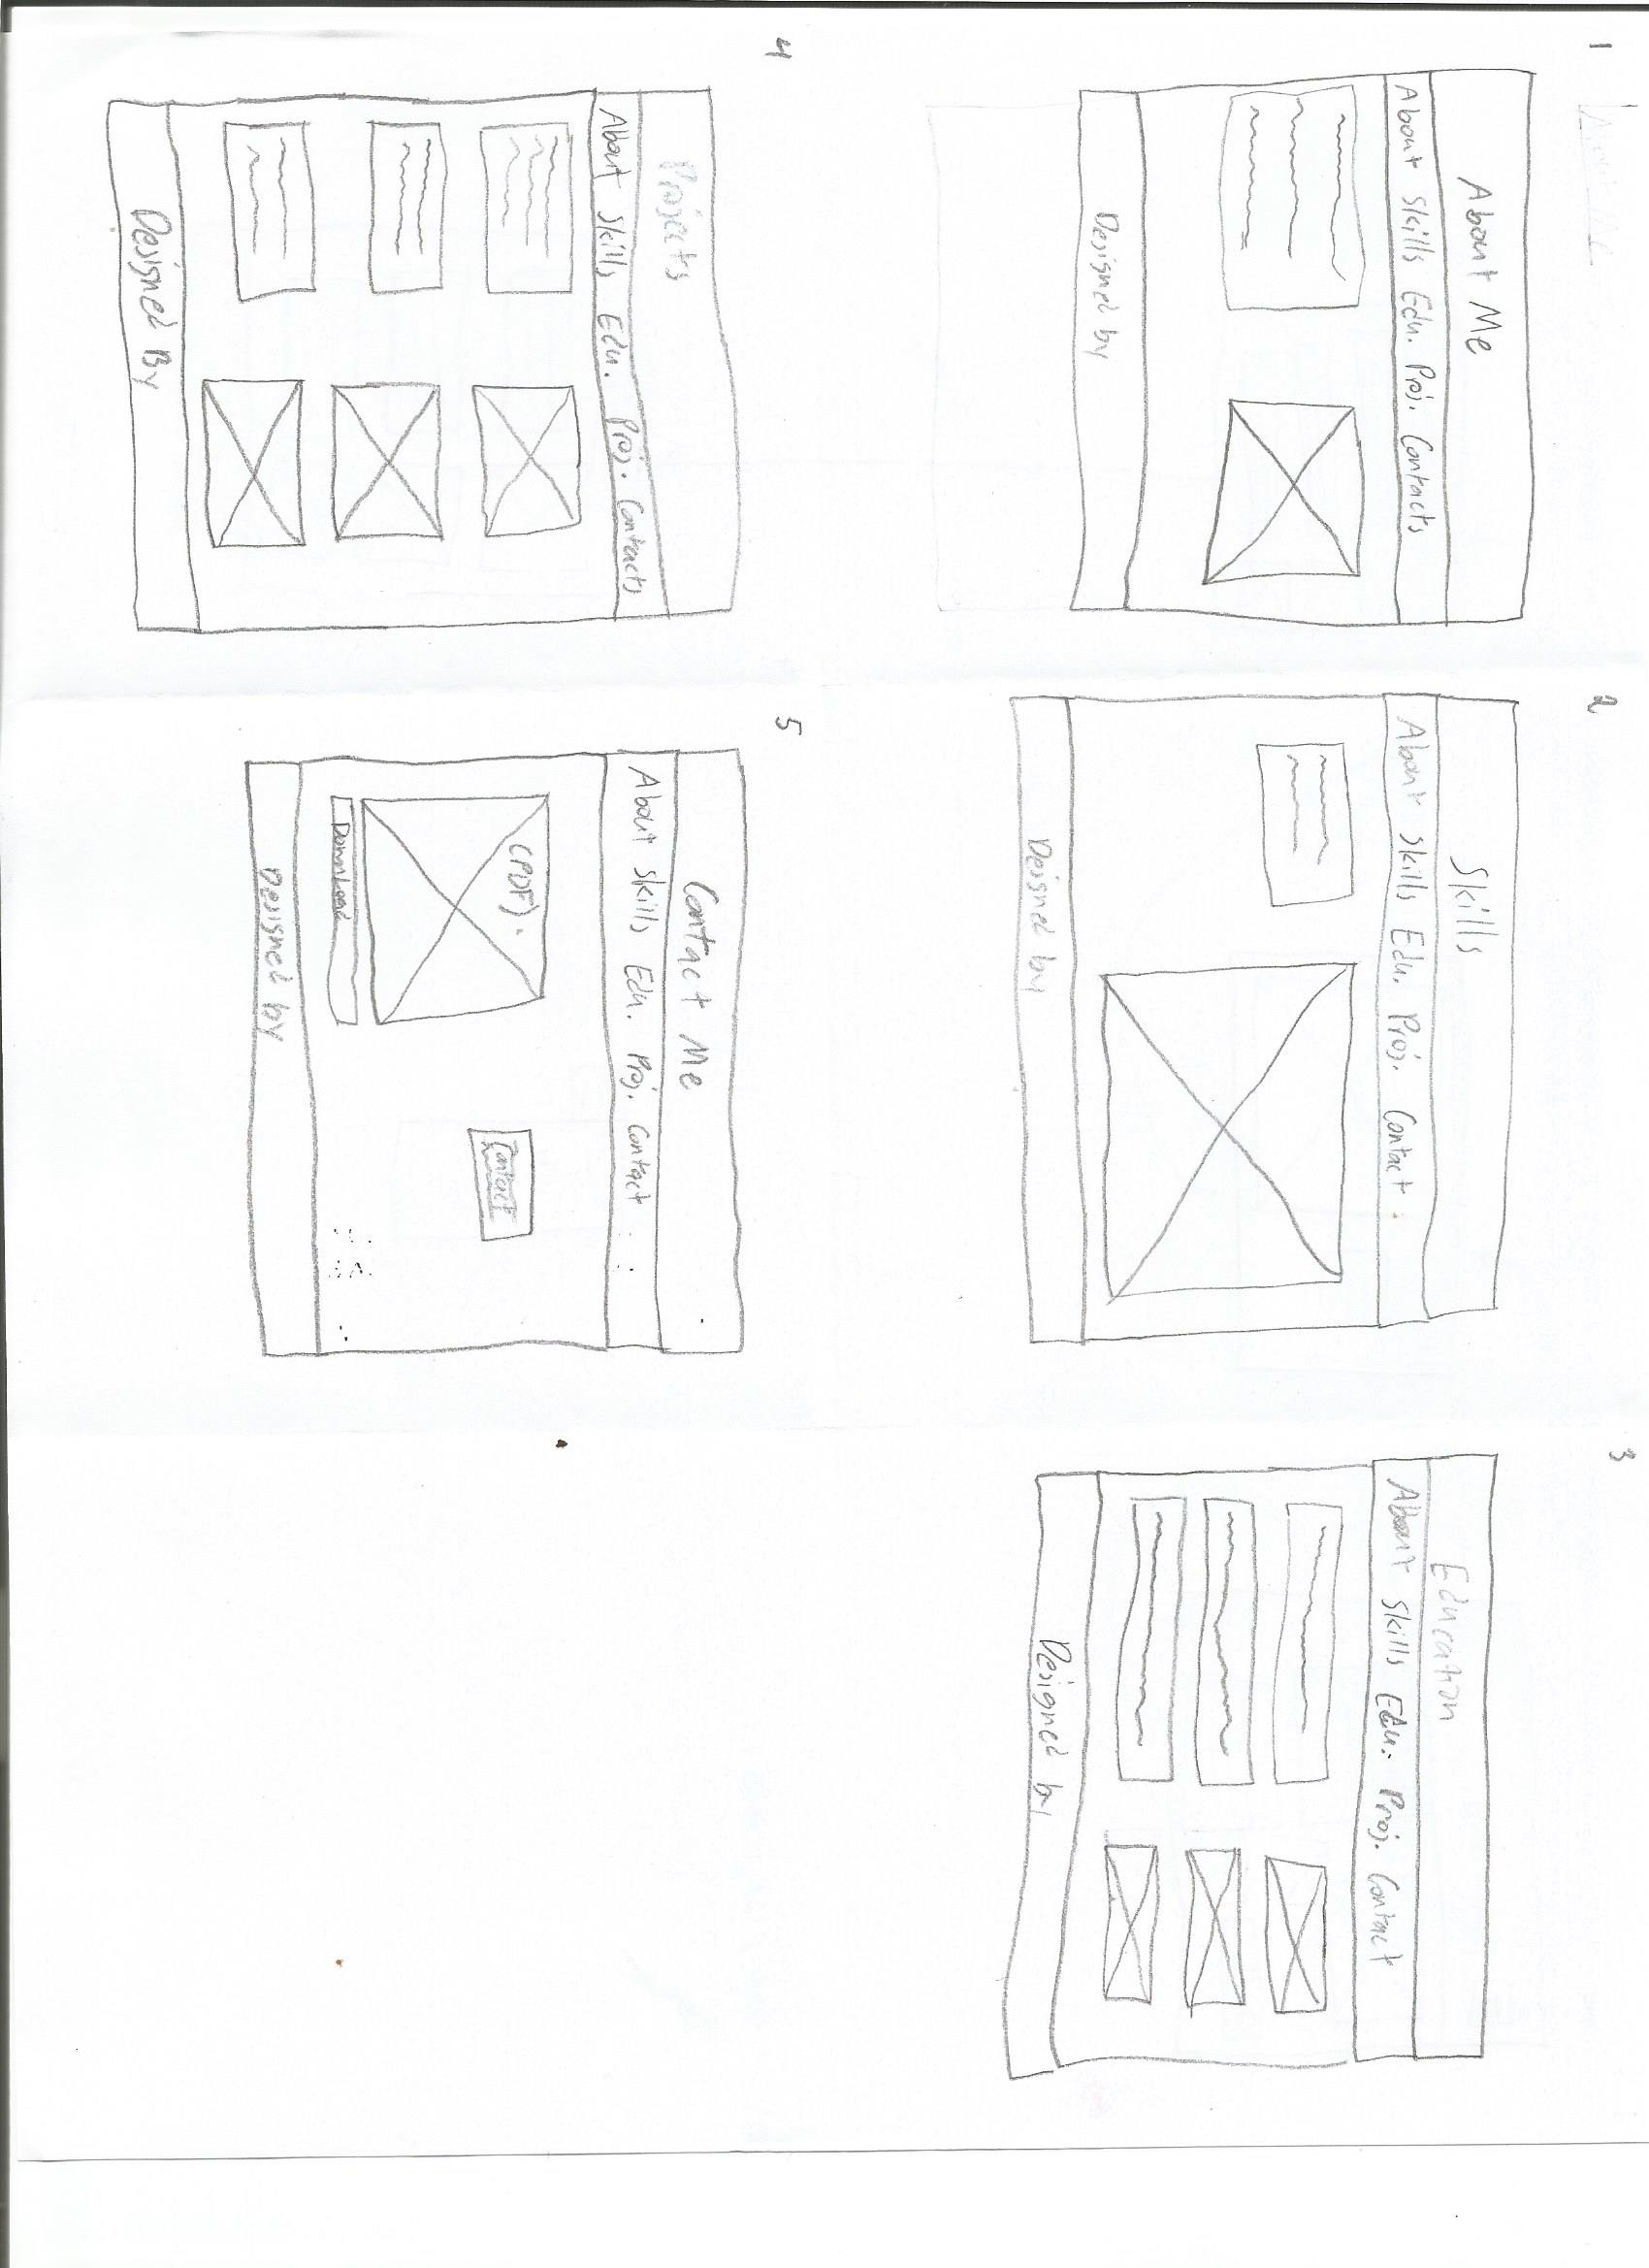 1
About Me
About Skills Edu. Proj. Contacts
Designed by
2
Skills
About Skills Edu. Proj. Contact
Designed by
3
Education
About Skills Edu. Proj. Contact
Designed by
4
Projects
About Skills Edu. Proj. Contacts
Designed By
5
Contact Me
About Skills Edu. Proj. Contact
(PDF).
Contact
Download
Designed by